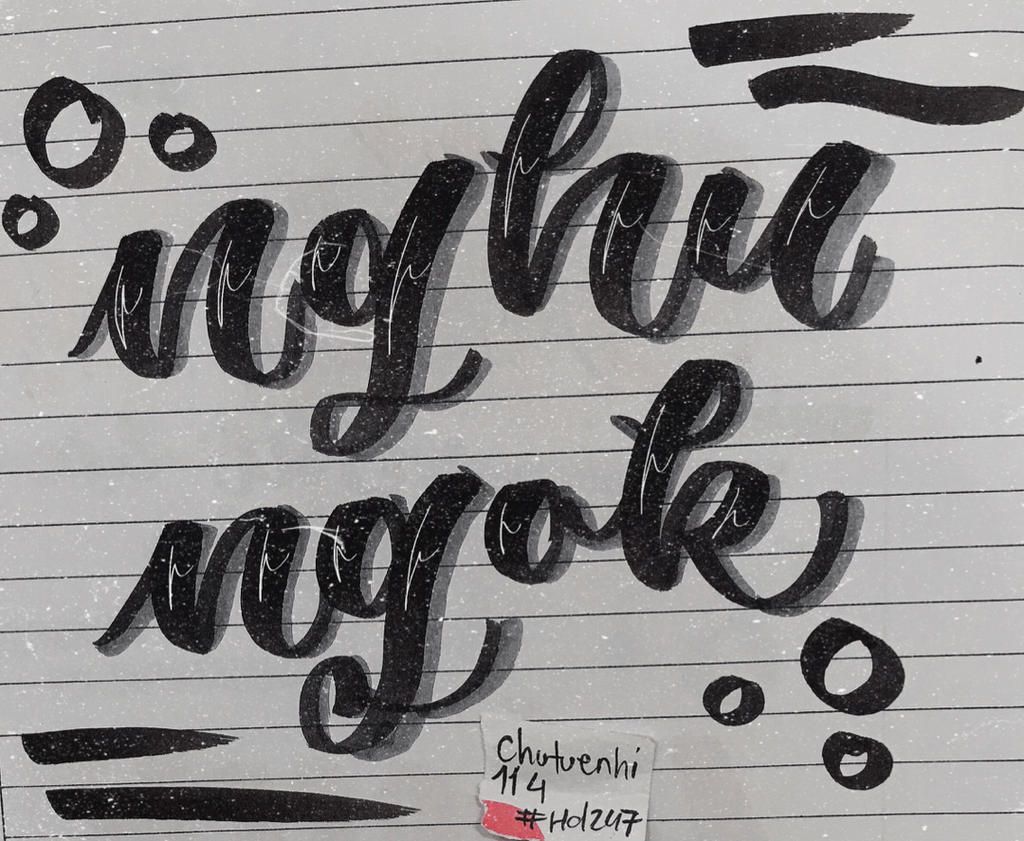 nghu
ngok
Chutuenhi
114
#Hd247